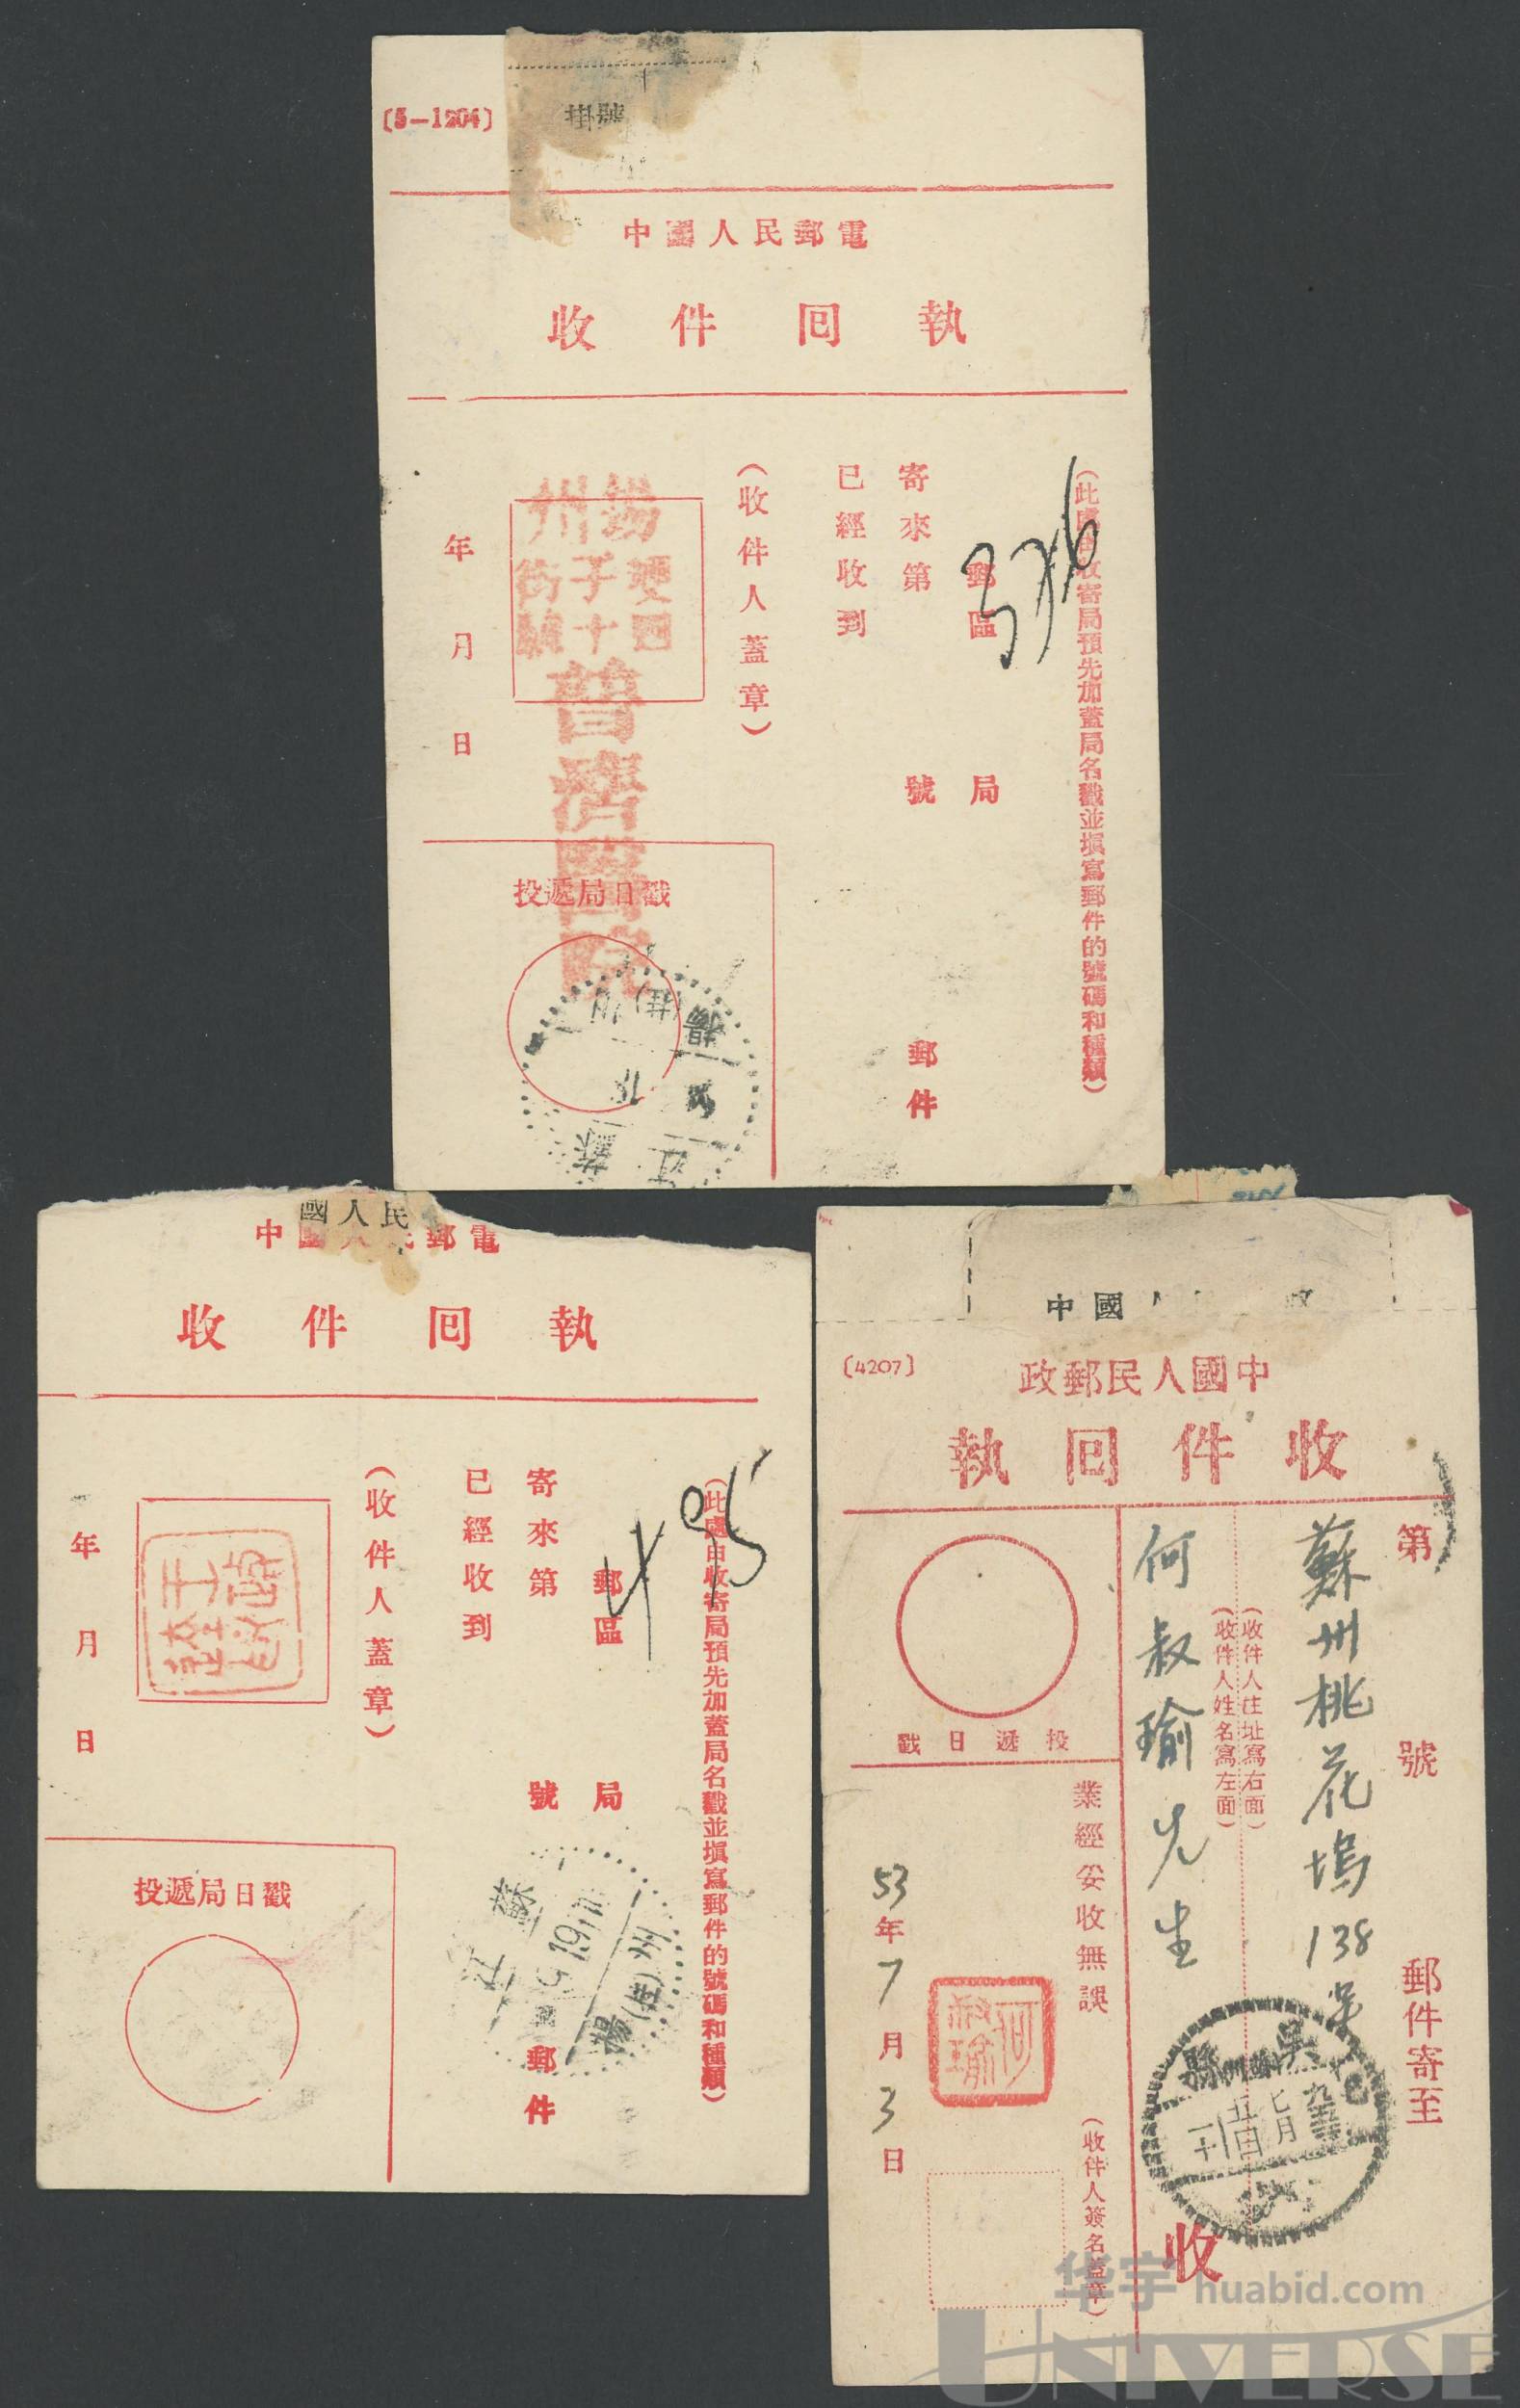 〔5-1204〕
掛號
中國人民郵電
收件回執
（此處由收寄局預先加蓋局名戳並填寫郵件的號碼和種類）
376
郵區 局
寄來第 號 郵件
已經收到
（收件人蓋章）
揚州
雙子街
四十號
普濟醫院
年 月 日
投遞局日戳
江蘇
揚州
國人民
中 郵電
收件回執
（此處由收寄局預先加蓋局名戳並填寫郵件的號碼和種類）
495
郵區 局
寄來第 號 郵件
已經收到
（收件人蓋章）
年 月 日
投遞局日戳
江蘇
揚 州
中國人
〔4207〕
中國人民郵政
收件回執
第 號 郵件寄至
蘇州桃花塢138号
（收件人住址寫右面）
（收件人姓名寫左面）
何叔瑜先生
收
吳縣
投遞日戳
業經妥收無誤
（收件人簽名蓋章）
何叔瑜
53年7月3日
华宇 huabid.com
UNIVERSE